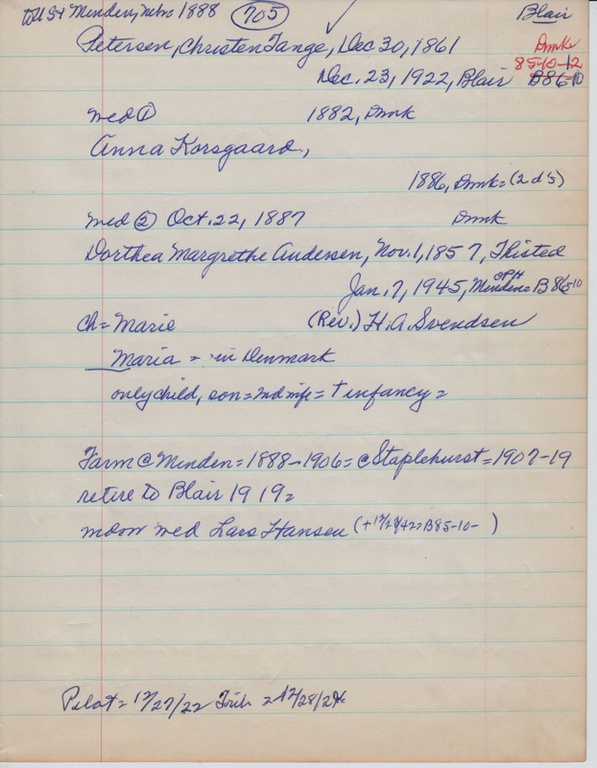 to US+ Minden, Nebr 1888 705 Blair
Petersen, Christen Tange, Dec 30, 1861 Dmk
85-10-12
Dec. 23, 1922, Blair B86-10
wed ① 1882, Dmk
Anna Korsgaard,
1886, Dmk = (2 d's)
wed ② Oct. 22, 1887 Dmk
Dorthea Margrethe Andersen, Nov. 1, 1857, Thisted
Jan. 7, 1945, Minden = B86-10
ch = Marie (Rev.) H.A. Svendsen
Maria = in Denmark
only child, son = 2nd wife = + infancy =
Farm @ Minden = 1888-1906 = @ Staplehurst = 1907-19
retire to Blair 1919 =
widow wed Lars Hansen B85-10- )
Pilot = 12/27/22 Trib = 12/28/22